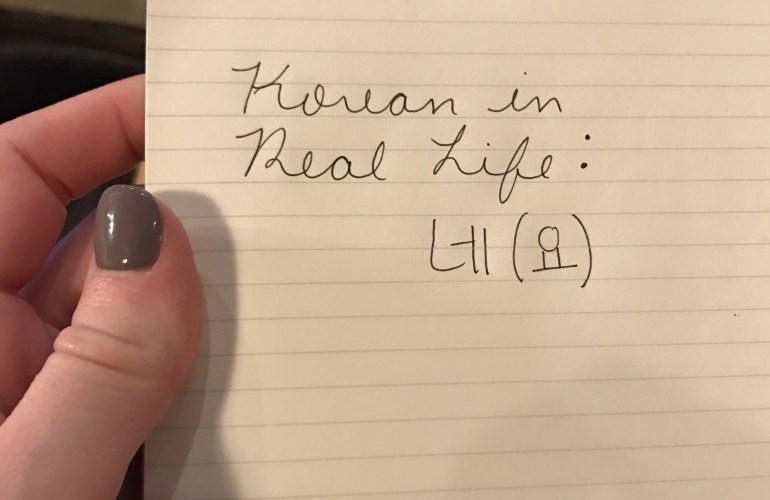 Korean in
Real Life:
네(요)